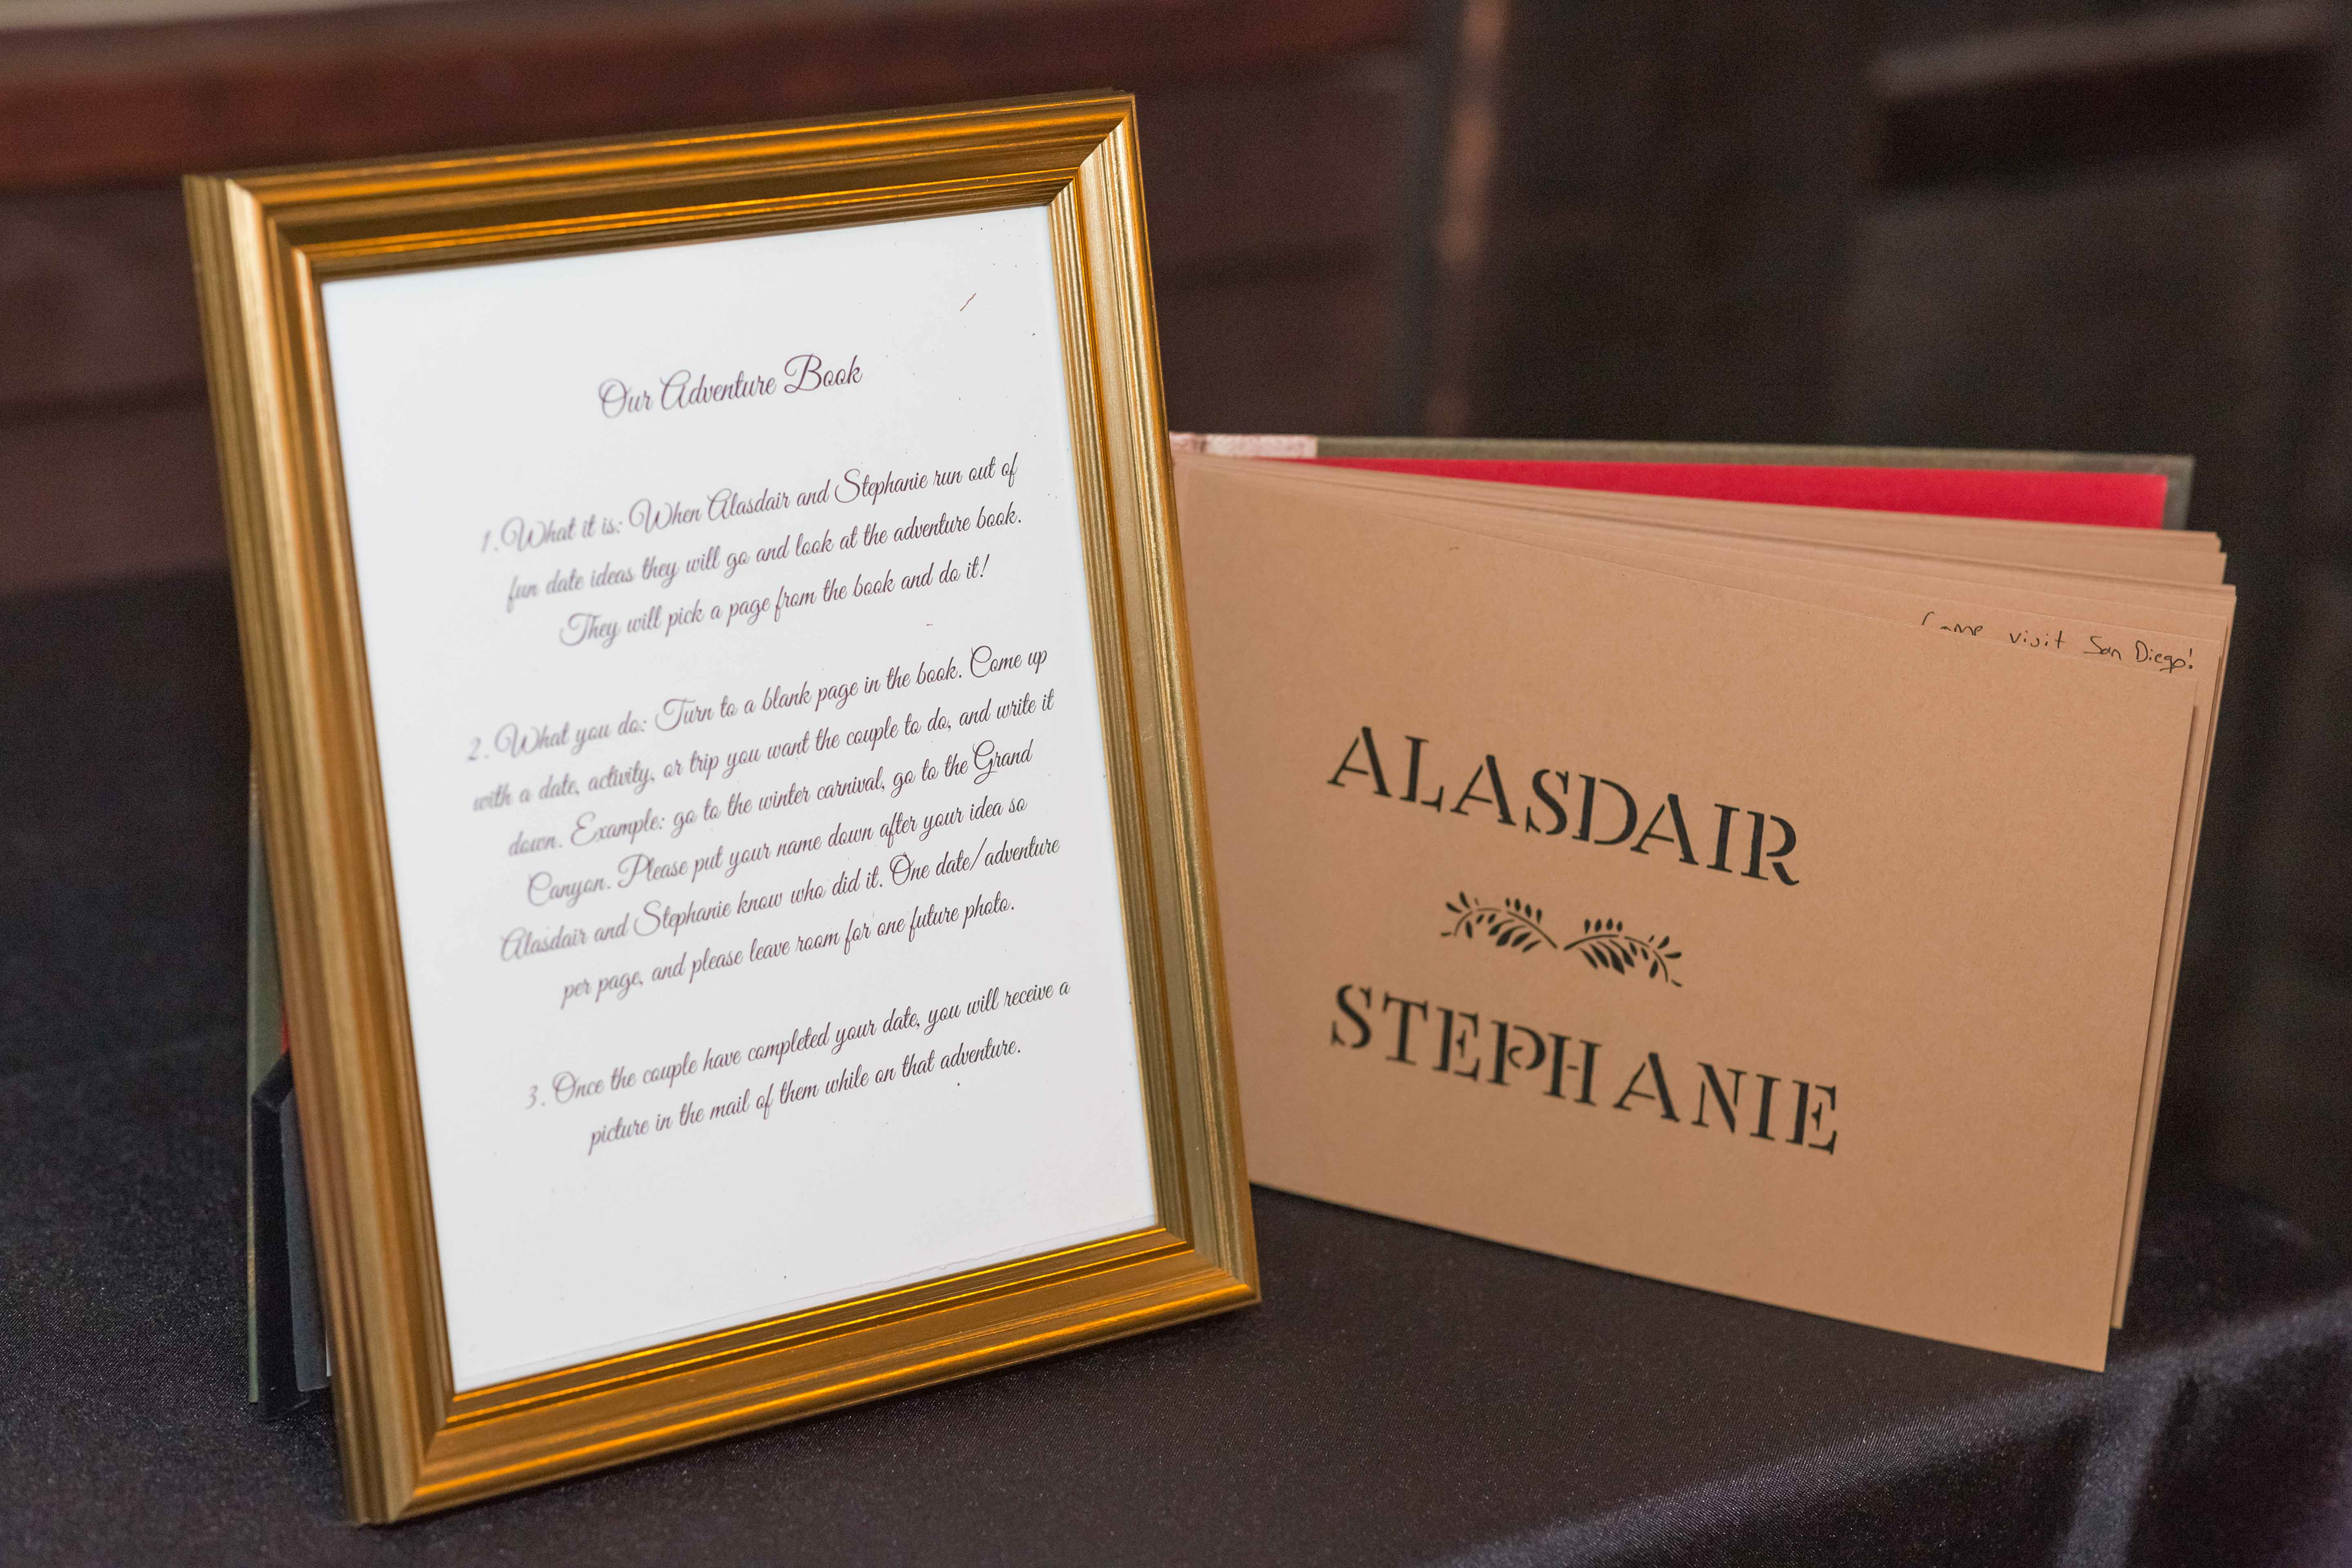 Our Adventure Book
1. What it is: When Alasdair and Stephanie run out of
fun date ideas they will go and look at the adventure book.
They will pick a page from the book and do it!
2. What you do: Turn to a blank page in the book. Come up
with a date, activity, or trip you want the couple to do, and write it
down. Example: go to the winter carnival, go to the Grand
Canyon. Please put your name down after your idea so
Alasdair and Stephanie know who did it. One date/adventure
per page, and please leave room for one future photo.
3. Once the couple have completed your date, you will receive a
picture in the mail of them while on that adventure.
Come visit San Diego!
ALASDAIR
STEPHANIE